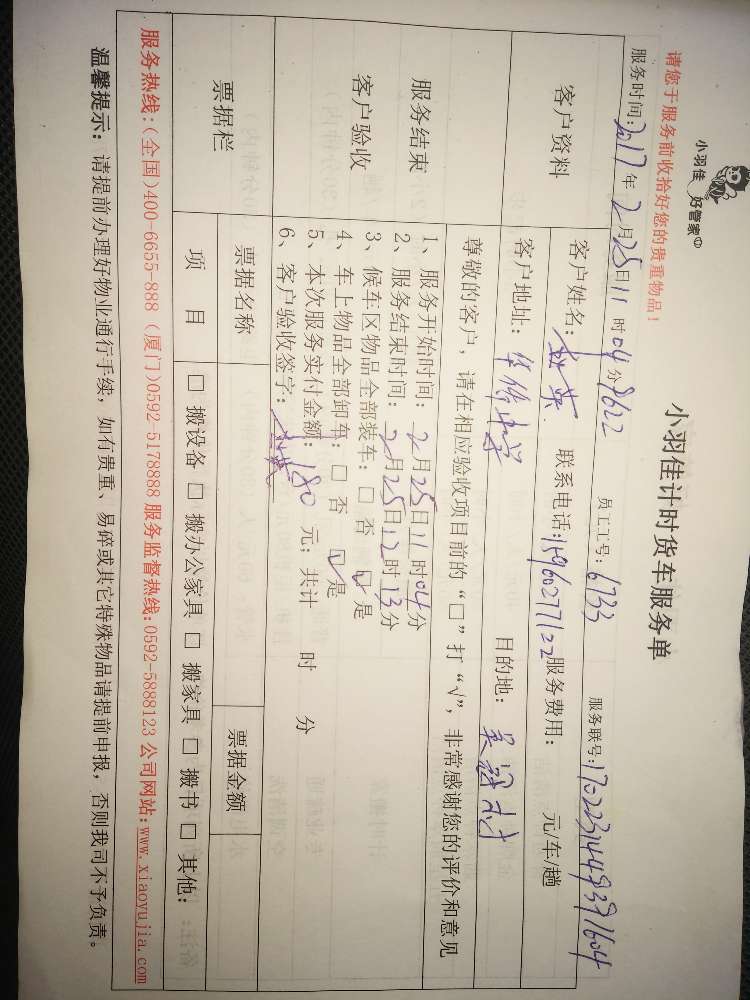 小羽佳 好管家
小羽佳计时货车服务单
请您于服务前收拾好您的贵重物品！
服务时间：2017年2月25日11时04分 8622 员工工号：6733 服务联号：
客户资料
客户姓名： 联系电话：15960277122 服务费用： 元/车/趟
客户地址： 中学 目的地：
服务结束
客户验收
尊敬的客户，请在相应验收项目前的“□”打“√”，非常感谢您的评价和意见
1、服务开始时间：2月25日11时04分
2、服务结束时间：2月25日12时13分
3、候车区物品全部装车：□ 否 ☑ 是
4、车上物品全部卸车：□ 否 ☑ 是
5、本次服务实付金额：180元；共计 时 分
6、客户验收签字：
票据栏
票据名称 票据金额
项 目 □ 搬设备 □ 搬办公家具 □ 搬家具 □ 搬书 □ 其他：
服务热线：(全国)400-6655-888 (厦门)0592-5178888 服务监督热线:0592-5888123 公司网站:www.xiaoyujia.com
温馨提示：请提前办理好物业通行手续，如有贵重、易碎或其它特殊物品请提前申报，否则我司不予负责。